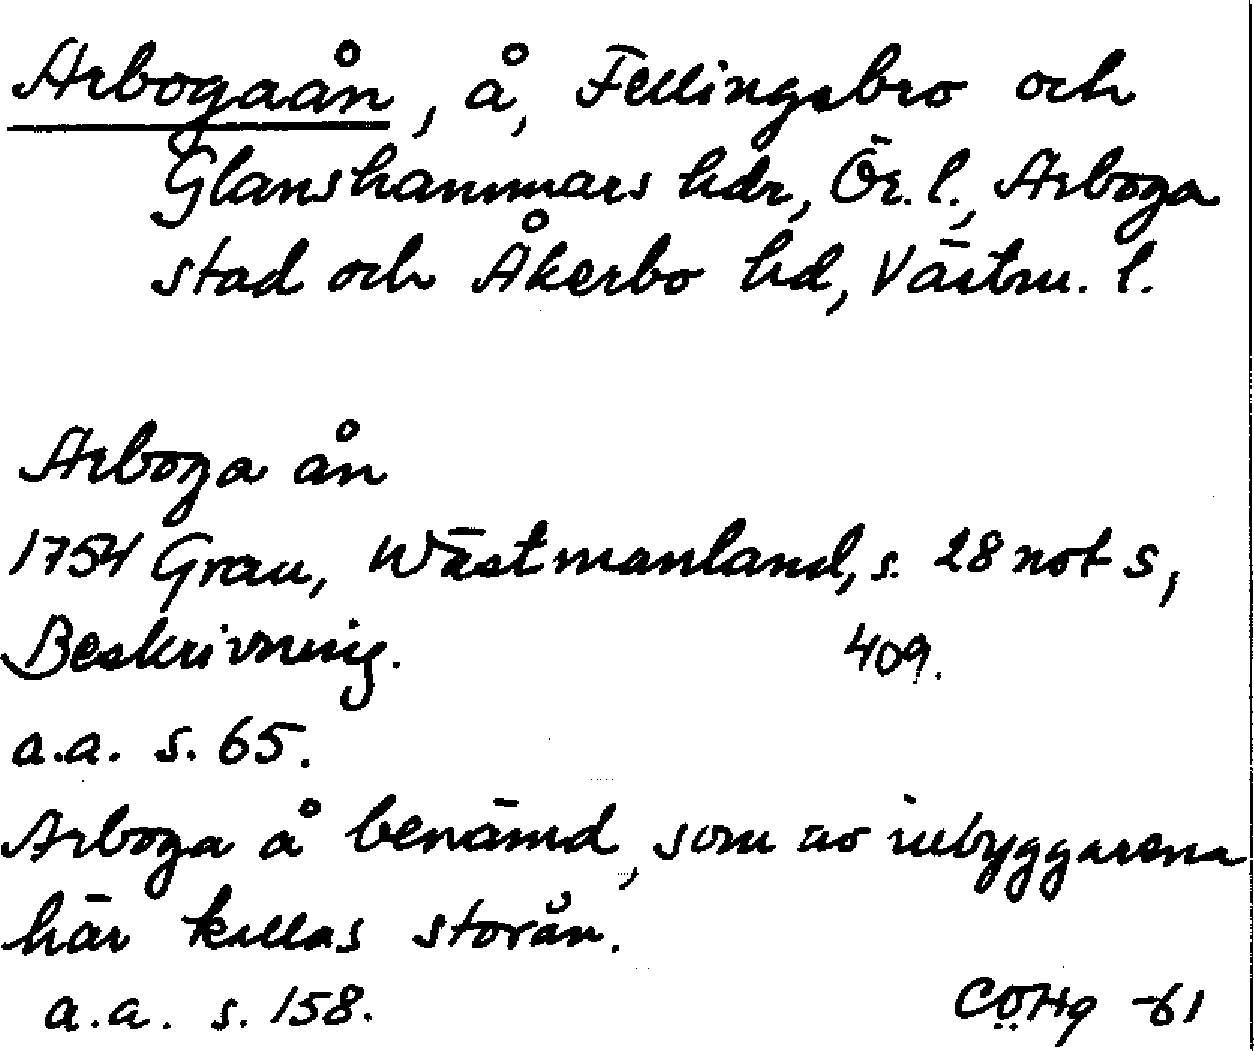 Arbogaån, å, Fellingsbro och
Glanshammars hdr, Ör. l., Arboga
stad och Åkerbo hd, Västm. l.
Arboga ån
1754 Grau, Wästmanland, s. 28 not s,
Beskrivning. 409.
a.a. s. 65.
Arboga å benämd, som av inbyggarena
här kallas storån.
a.a. s. 158. CÖHg -61